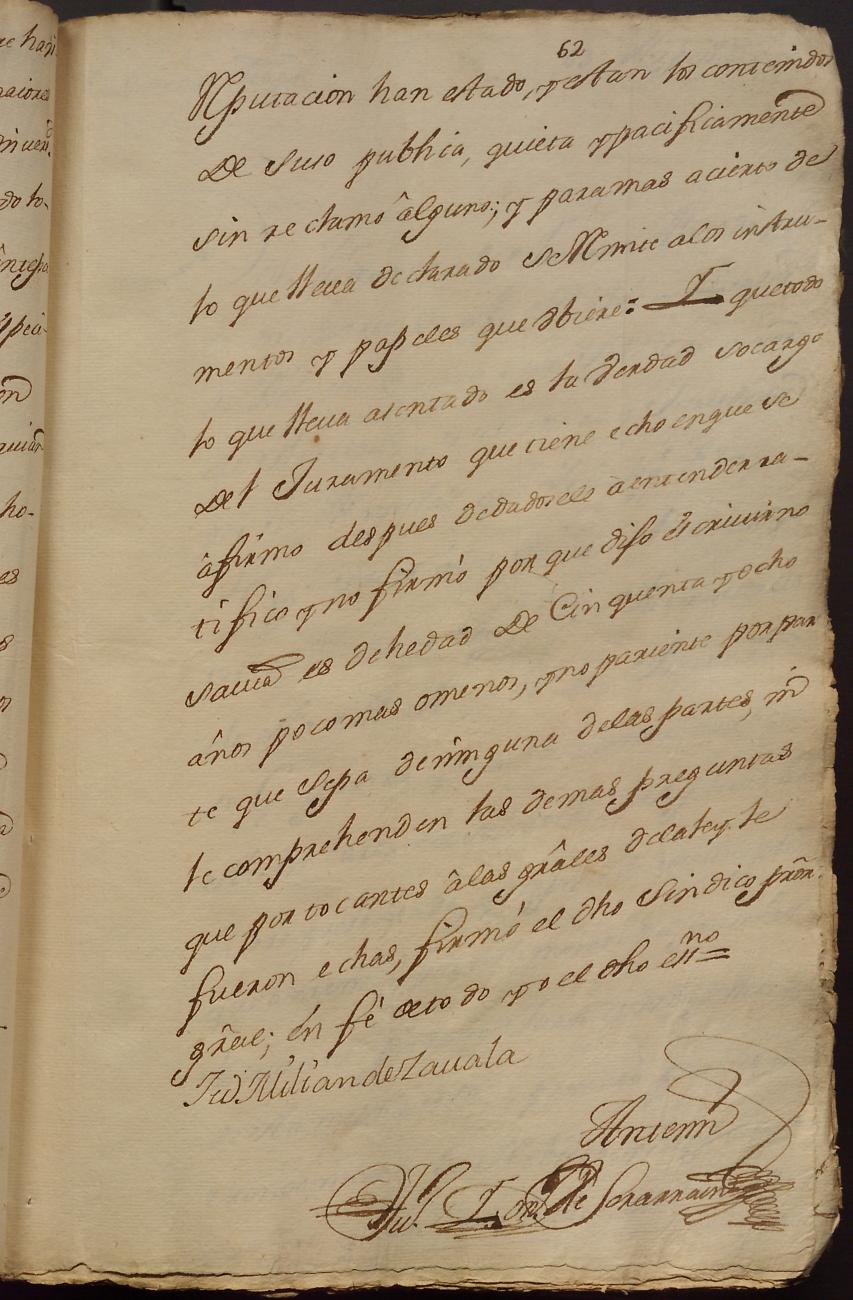 62
Rputacion han estado, y estan los contenidos
De suso publica, quieta y pacificamente
sin reclamo âlguno; y paramas acierto de
lo que lleua declarado se Rmite alos instru-
mentos y papeles que obiere: Y quetodo
lo que lleua asentado es la Verdad socargo
Del Juramento que tiene echo enque se
âfirmo despues dedadosele âentender ra-
tifico y no firmó por que dijo êscriuirno
sauia es dehedad De Cinquenta y ocho
años poco mas omenos, y no pariente por par
te que sepa deninguna delas partes, ni
le comprehenden las demas preguntas
que por tocantes âlas grâles delaley le
fueron echas, firmó el dho Sindico prôr
grâl; En fê detodo yo el dho essno =
Milian de Zauala
Antemi
De